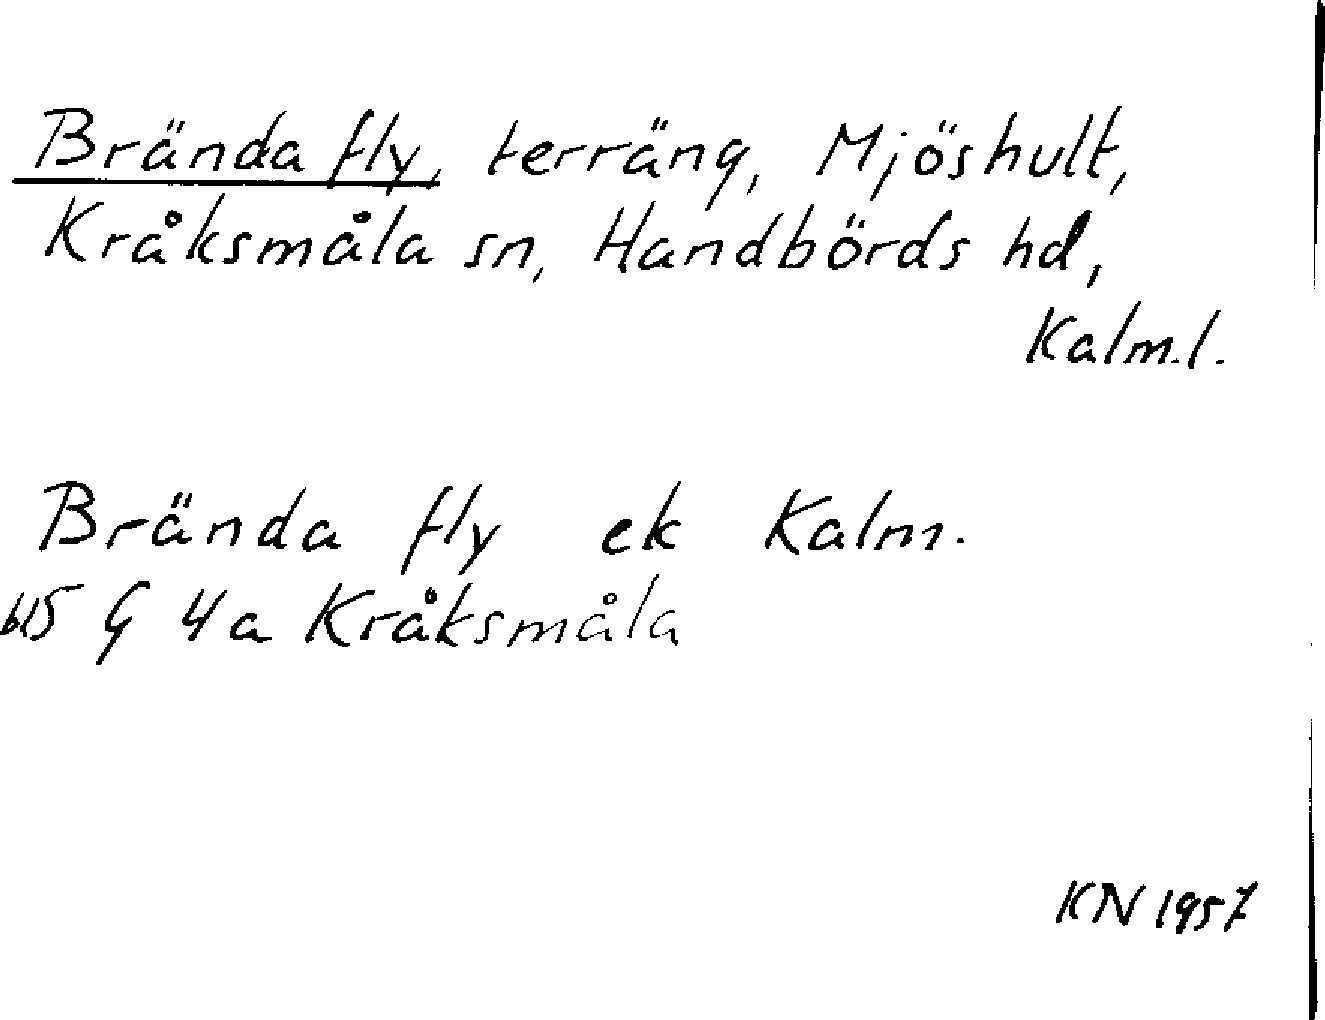 Brända fly, terräng, Mjöshult,
Kråksmåla sn, Handbörds hd,
Kalm.l.
Brända fly ek Kalm.
G 4a Kråksmåla
KN 1957